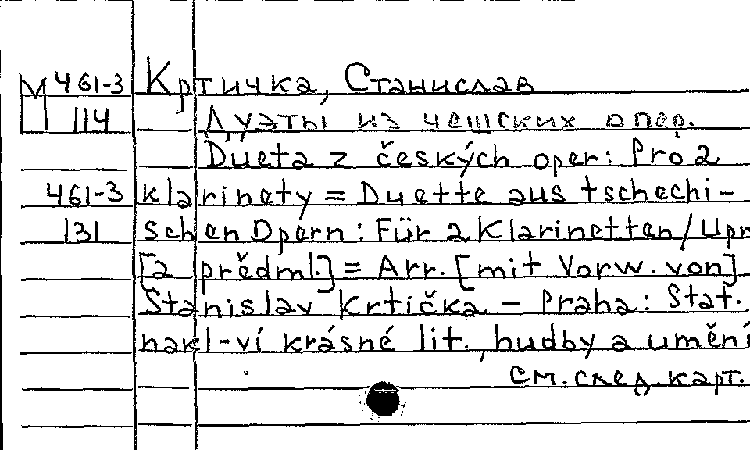 М 461-3 Кртичка, Станислав
114 Дуэты из чешских опер.
Dueta z českých oper: Pro 2
461-3 klarinety = Duette aus tschechi-
131 schen Opern: Für 2 Klarinetten/Upr
[z předml.] = Arr. [mit Vorw. von]
Stanislav Krtička. - Praha: Stat.
nakl-ví krásné lit., hudby a umění
см. след. карт.